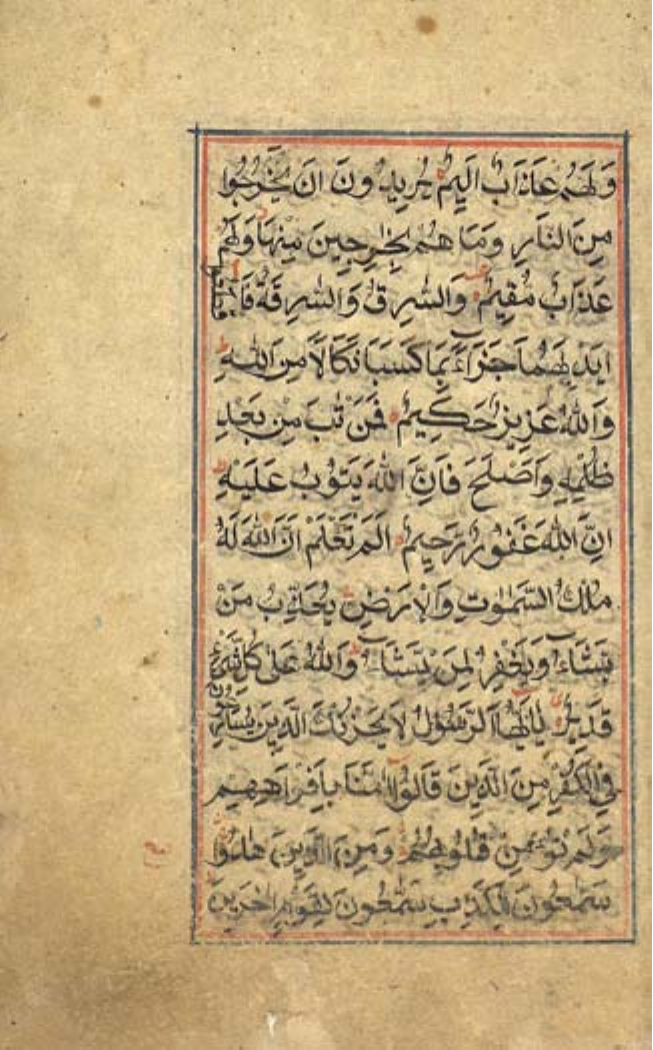 وَلَهُمْ عَذَابٌ اَلِيْمٌ يُرِيدُونَ اَنْ يَخْرُجُوا
مِنَ النَّارِ وَمَا هُمْ بِخٰرِجِينَ مِنْهَا وَلَهُمْ
عَذَابٌ مُقِيمٌ وَالسَّارِقُ وَالسَّارِقَةُ فَاقْطَعُوا
اَيْدِيَهُمَا جَزَاءً بِمَا كَسَبَا نَكَالًا مِنَ اللّٰهِ
وَاللّٰهُ عَزِيزٌ حَكِيمٌ فَمَنْ تَابَ مِنْ بَعْدِ
ظُلْمِهِ وَاَصْلَحَ فَاِنَّ اللّٰهَ يَتُوْبُ عَلَيْهِ
اِنَّ اللّٰهَ غَفُوْرٌ رَحِيمٌ اَلَمْ تَعْلَمْ اَنَّ اللّٰهَ لَهُ
مُلْكُ السَّمٰوٰتِ وَالْاَرْضِ يُعَذِّبُ مَنْ
يَشَاءُ وَيَغْفِرُ لِمَنْ يَشَاءُ وَاللّٰهُ عَلٰى كُلِّ شَيْءٍ
قَدِيرٌ يٰاَيُّهَا الرَّسُوْلُ لَا يَحْزُنْكَ الَّذِينَ يُسَارِعُوْنَ
فِي الْكُفْرِ مِنَ الَّذِينَ قَالُوْا اٰمَنَّا بِاَفْوَاهِهِمْ
وَلَمْ تُؤْمِنْ قُلُوْبُهُمْ وَمِنَ الَّذِينَ هَادُوْا
سَمّٰعُوْنَ لِلْكَذِبِ سَمّٰعُوْنَ لِقَوْمٍ اٰخَرِينَ